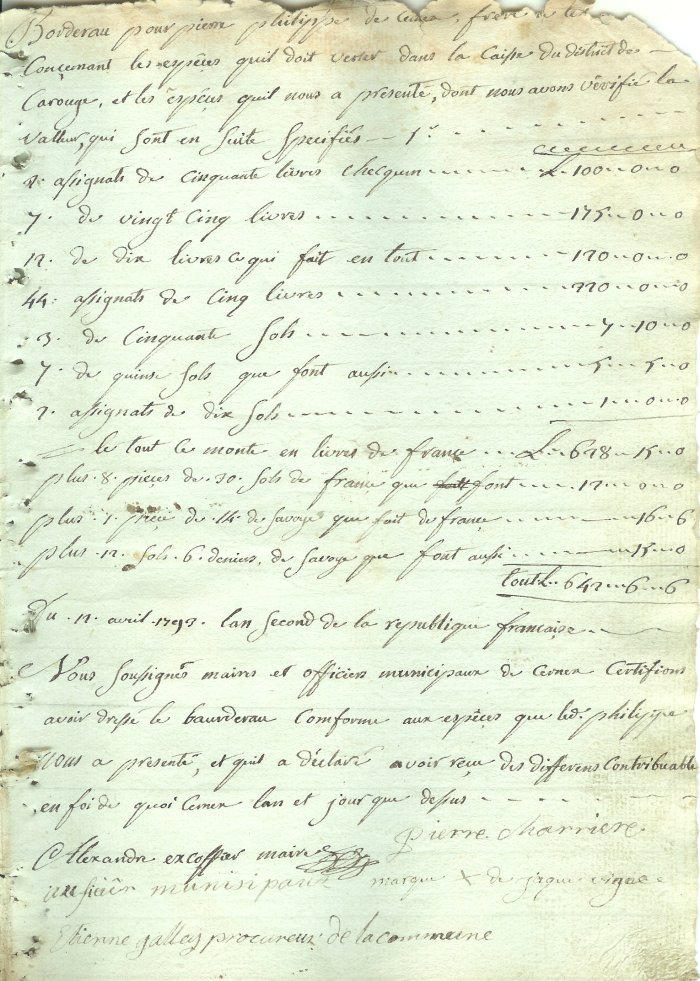 Borderau pour pierre philippe de Cerner, frere
Conçenant les espêces quil doit verser dans la Caisse du district de
Carouge, et les espêces quil nous a présenté, dont nous avons vérifié la
valleur, qui sont en suite specifiés
2. assignats de cinquante livres checqun L. 100 - 0 - 0
7. de vingt Cinq livres 175 - 0 - 0
12. de dix livres ce qui fait en tout 120 - 0 - 0
44. assignats de Cinq livres 220 - 0 - 0
3. de Cinquante Sols 7 - 10 - 0
7. de quinse sols que font aussi 5 - 5 - 0
2. assignats de dix Sols 1 - 0 - 0
le tout ce monte en livres de françe L. 628 - 15 - 0
plus 8 pieces de 30 sols de france que font 12 - 0 - 0
plus 1 pieçe de 14 de savoye que fait de françe 16 - 6
plus 12 sols 6 deniers de savoye que font aussi 15 - 0
tout L. 642 - 6 - 6
Du 12 avril 1793 lan second de la republique française
Nous soussignés maires et officiers municipaux de Cerner Certifions
avoir dressé le baurderau Comforme aux espêces que led. philippe
nous a présenté, et quil a déclaré avoir reçu des differens Contribuable
en foi de quoi Cerner lan et jour que dessus
pierre charriere
Alexandre excoffier maire
munisipaux marque x de jaque vigne
Etienne gallay procureur de la commune